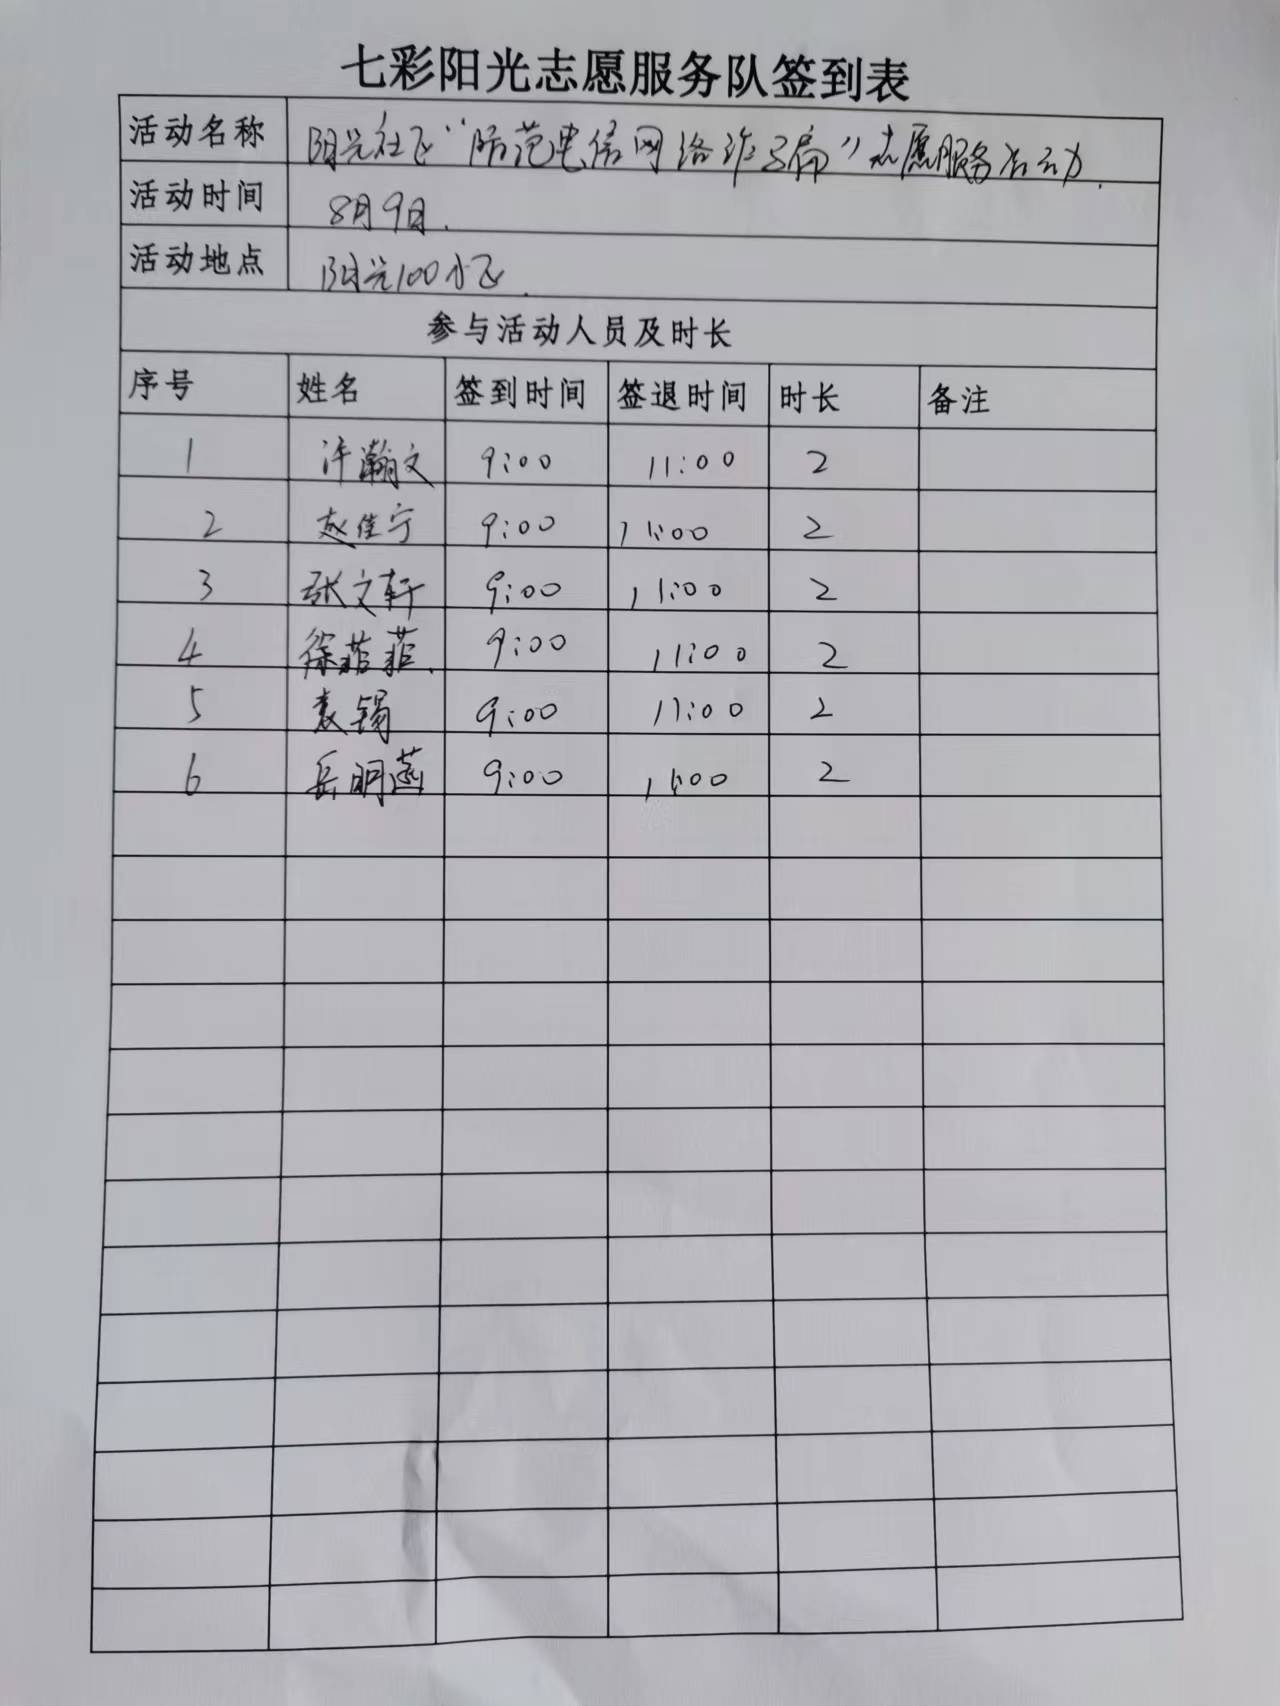 七彩阳光志愿服务队签到表
活动名称 阳光社区“防范电信网络诈骗”志愿服务活动.
活动时间 8月9日.
活动地点 阳光100小区.
参与活动人员及时长
序号 姓名 签到时间 签退时间 时长 备注
1 许瀚文 9:00 11:00 2
2 赵佳宁 9:00 11:00 2
3 张文轩 9:00 11:00 2
4 徐菲菲. 9:00 11:00 2
5 袁锡 9:00 11:00 2
6 岳明 9:00 11:00 2